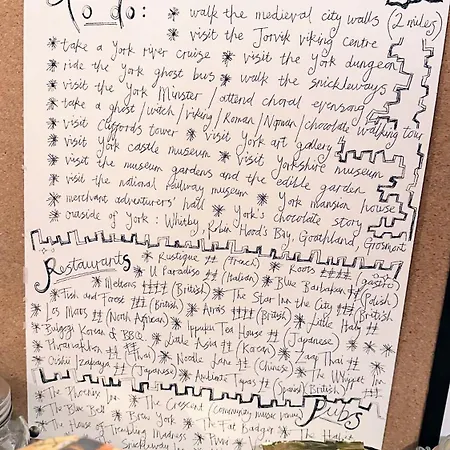 to do:
* walk the medieval city walls (2 miles)
* visit the Jorvik viking centre
* take a York river cruise * visit the York dungeon
* ride the York ghost bus * walk the snickleways
* visit the York Minster / attend choral evensong
* take a ghost/witch/viking/Roman/Norman/chocolate walking tour
* visit Cliffords tower * visit York art gallery
* visit York castle museum * visit Yorkshire museum
* visit the museum gardens and the edible garden
* visit the national railway museum * York mansion house
* merchant adventurers' hall * York's chocolate story
* outside of York: Whitby, Robin Hood's Bay, Goathland, Grosmont
Restaurants * Rustique ££ (French) * Roots ££££
* U Paradiso ££ (Italian) * Blue Barbakan ££ (Polish)
* Meltons ££££ (British) * The Star Inn the City £££ (British)
* Fish and Forest £££ (British) * Arras ££££ (British) * Little Italy ££
* Los Moros ££ (North African) * Ippuku Tea House ££ (Japanese)
* Bulgogi Korean & BBQ ££ * Little Asia ££ (Korean) * Zaap Thai ££
* Phranakhon ££ (Thai) * Noodle Lane ££ (Chinese) * The Whippet Inn
* Oishii Izakaya ££ (Japanese) * Ambiente Tapas ££ (Spanish British) £££
* The Phoenix Inn * The Crescent (community music venue) Pubs
* The Blue Bell * Brew York * The Fat Badger
* The House of Trembling Madness * The
* The Snickleway Inn